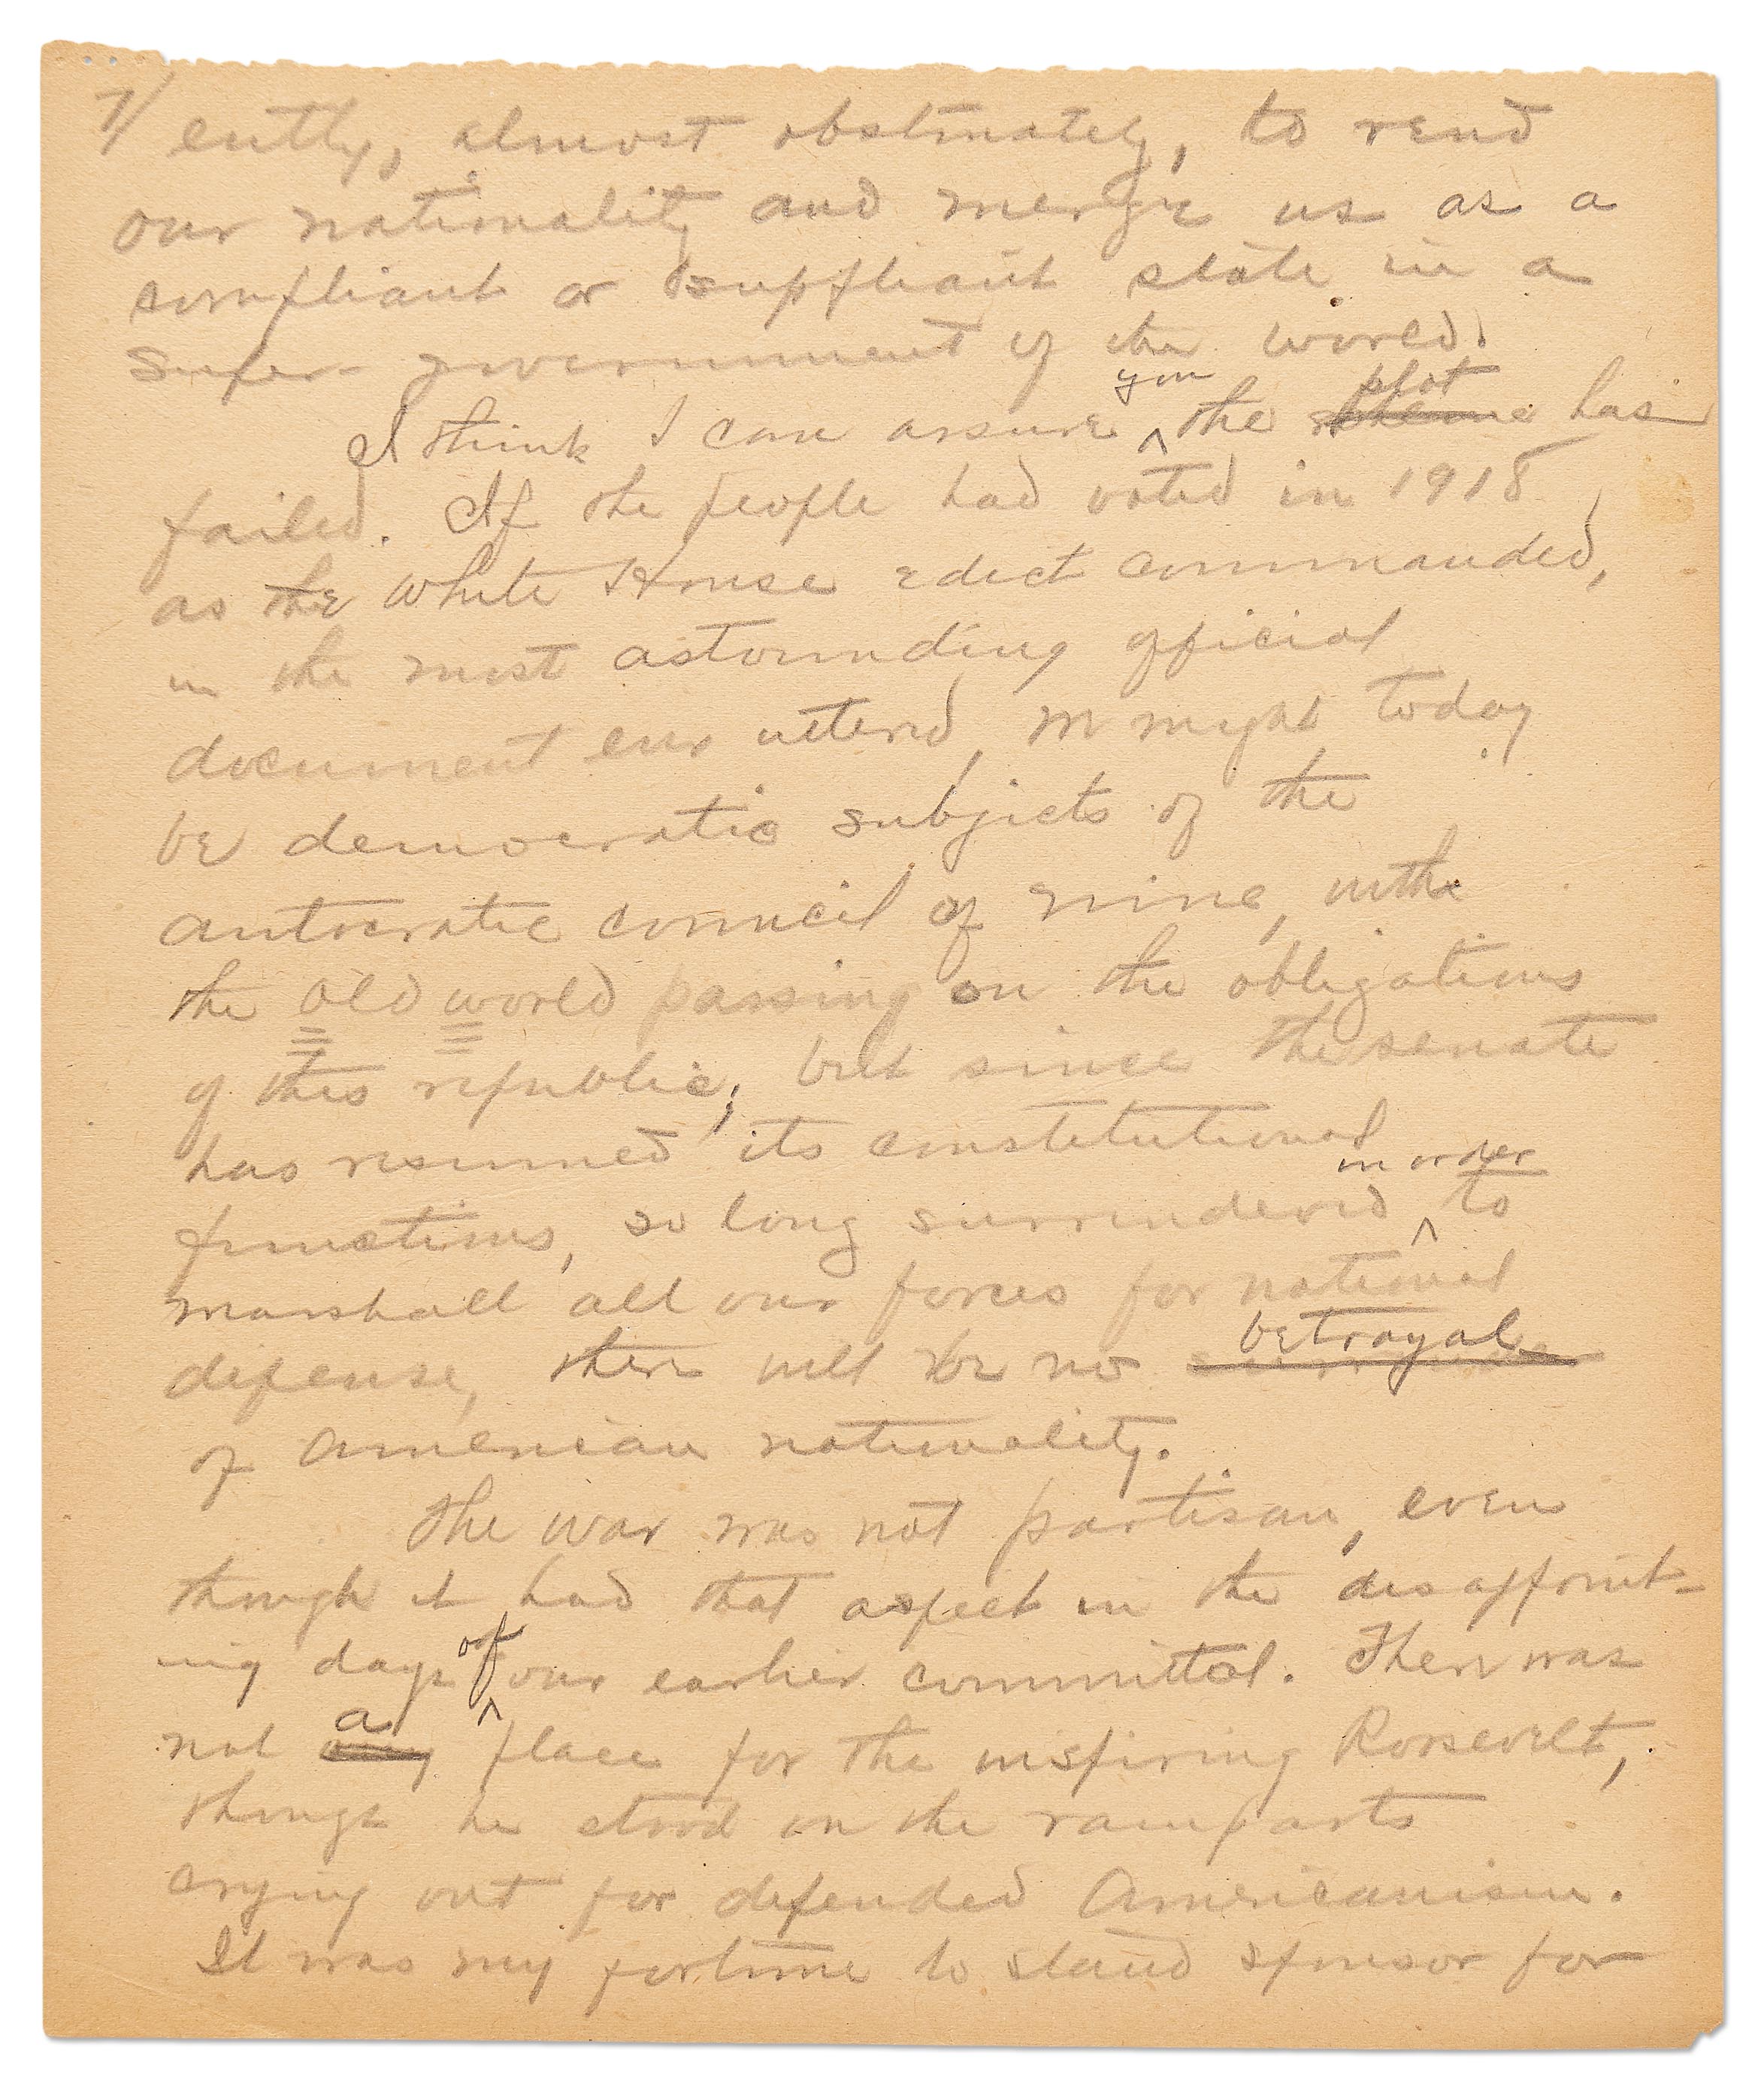 7/ ently, almost obstinately, to rend
our nationality and merge us as a
compliant or suppliant state in a
super-government of the world.
I think I can assure you the plot has
failed. If the people had voted in 1918
as the White House edict commanded,
in the most astounding official
document ever uttered, we might today
be democratic subjects of the
autocratic council of nine, with
the old world passing on the obligations
of this republic; but since the senate
has resumed its constitutional
functions, so long surrendered in order to
marshall all our forces for national
defense, there will be no betrayal
of American nationality.
The war was not partisan, even
though it had that aspect in the disappoint-
ing days of our earlier committal. There was
not a place for the inspiring Roosevelt,
though he stood on the ramparts
crying out for defended Americanism.
It was my fortune to stand sponsor for